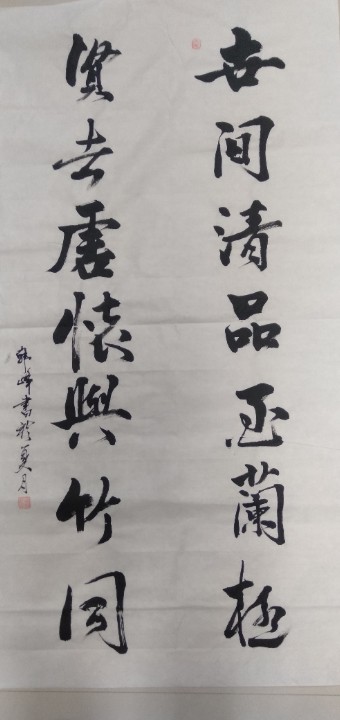 世間清品至蘭極
賢者虛懷與竹同
峰書於夏月